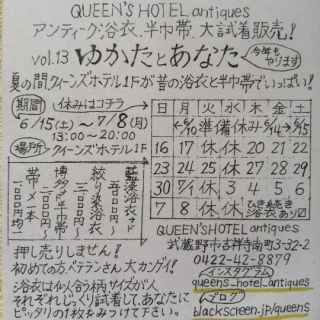 QUEEN'S HOTEL antiques
アンティーク浴衣、半巾帯、大試着販売！
vol.13 ゆかたとあなた
今年もやります
夏の間、クイーンズホテル1Fが昔の浴衣と半巾帯でいっぱい！
期間 休みはコチラ
6/15(土)〜7/8(月)
13:00〜20:00
場所 クイーンズホテル1F
日 月 火 水 木 金 土
←6/10 準備休み 6/14→ 6/15
16 17 休 休 20 21 22
23 24 休 休 27 28 29
30 7/1 休 3 4 5 6
7 8 休 休 ひき続き浴衣あり〼
絞り染浴衣
博多半巾帯
帯〆一本
一〇〇〇円均一
押し売りしません！
初めての方、ベテランさん大カンゲイ！
浴衣は仙人合柄、サイズが人
それぞれじっくり試着して、あなたに
ピッタリの1枚をみつけて下さい。
QUEEN'S HOTEL antiques
武蔵野市吉祥寺南町3-32-2
0422-42-8879
インスタグラム
queens_hotel_antiques
ブログ
blackscreen.jp/queens